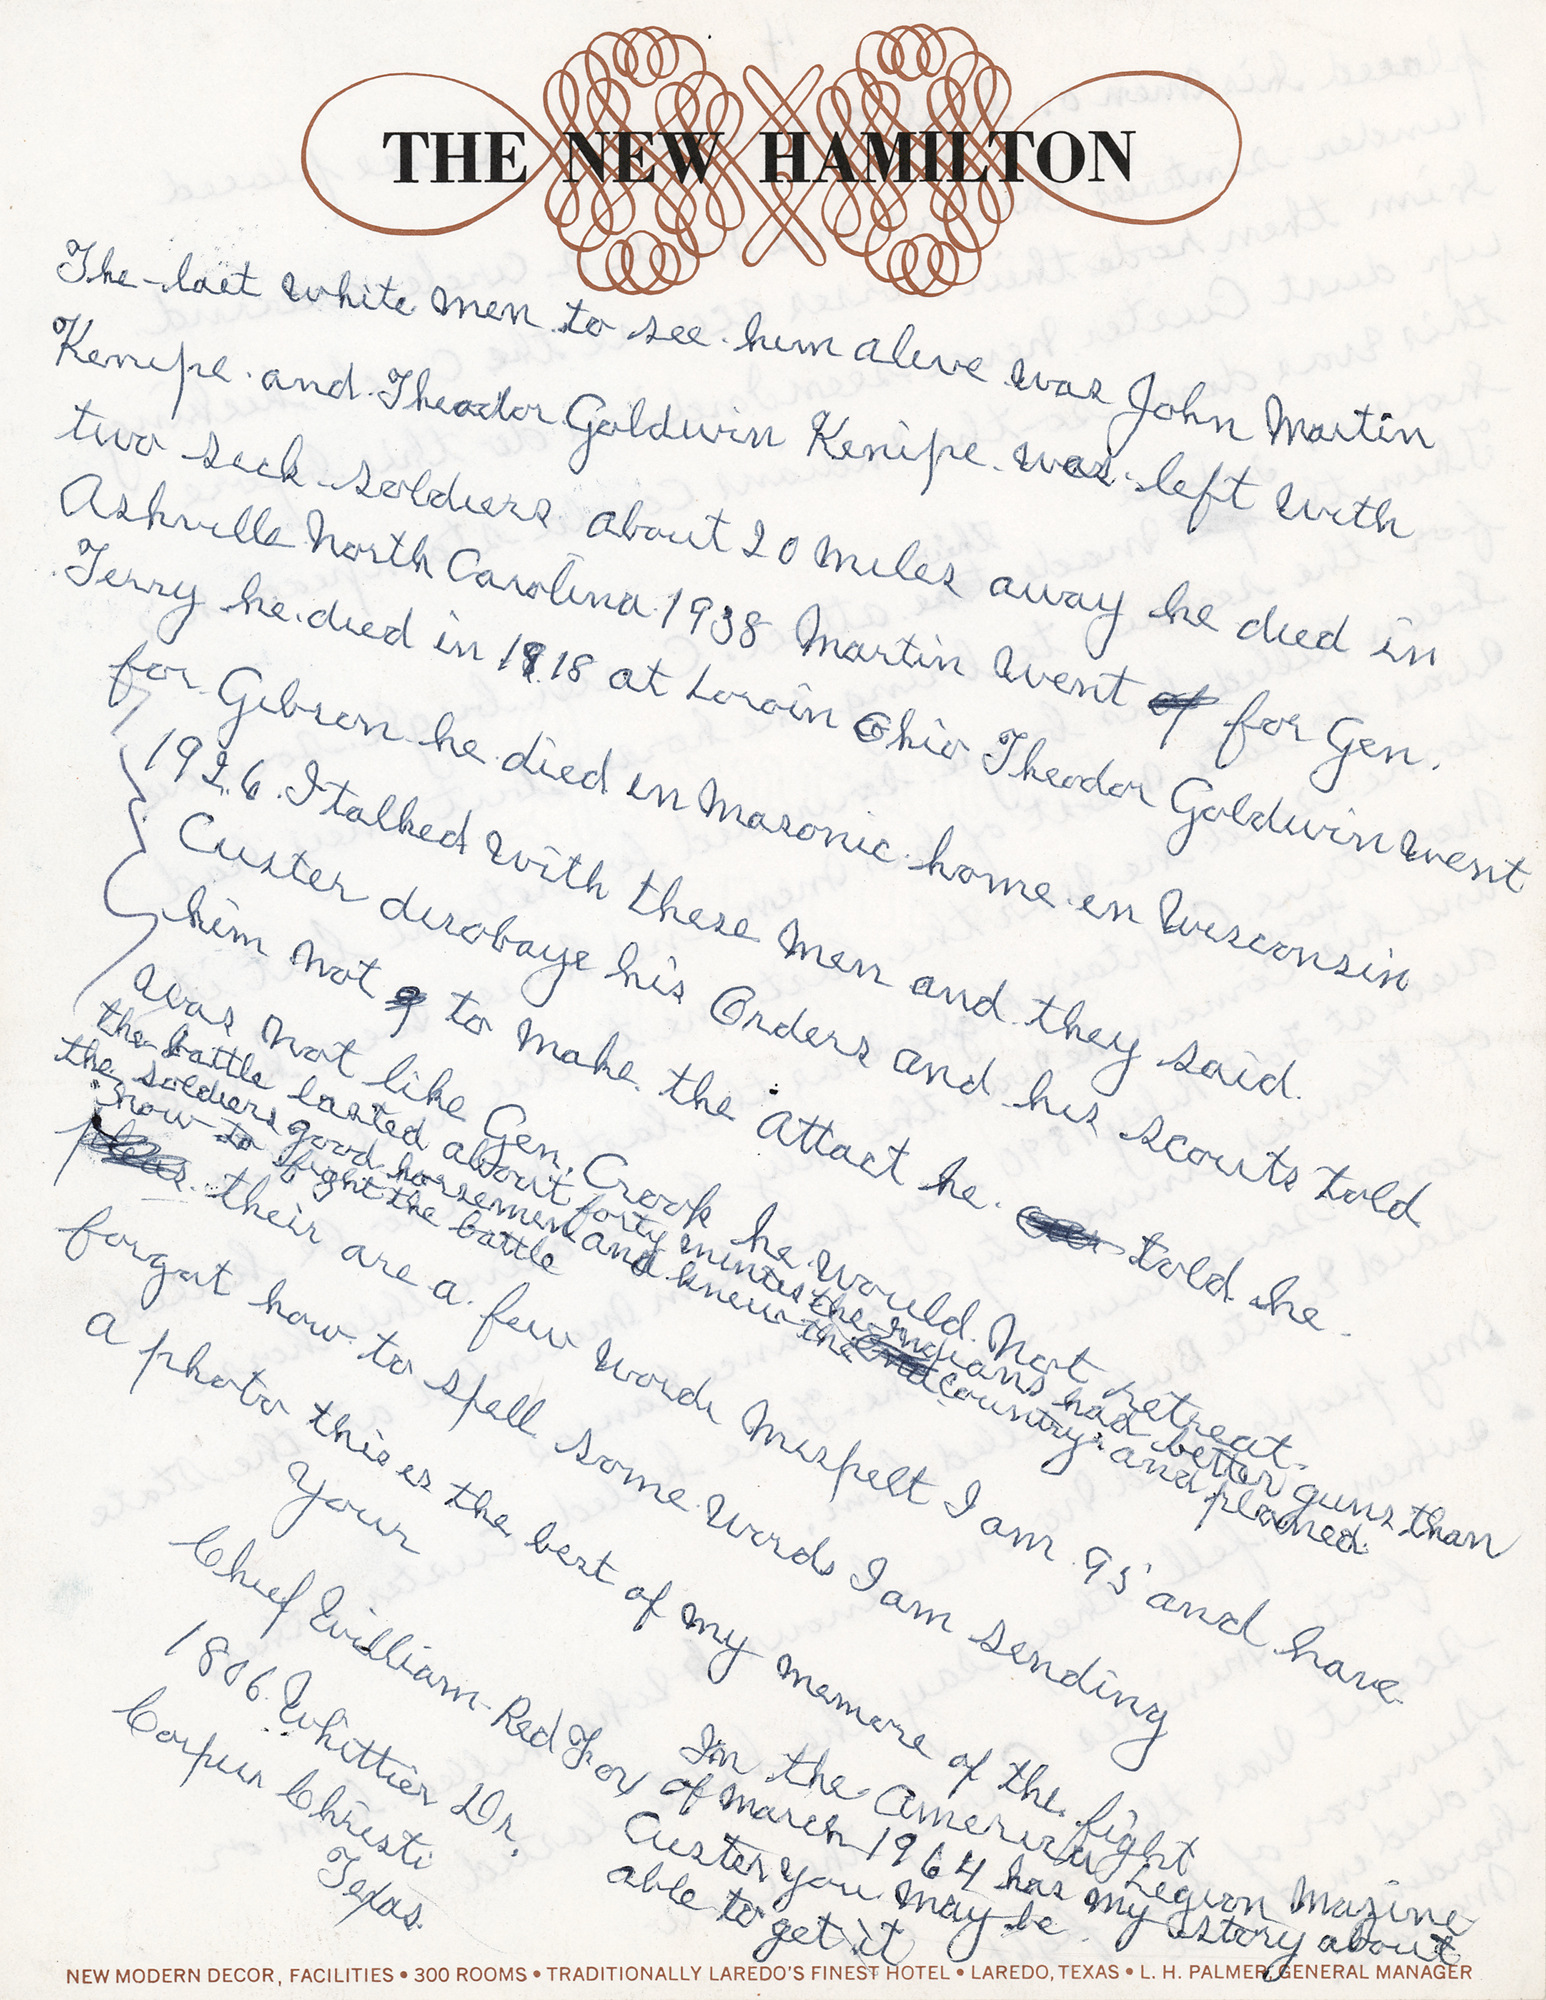 THE NEW HAMILTON
The last white men to see him alive was John Martin
Kenipe and Theodor Goldwin Kenipe was left with
two sick soldiers about 20 miles away he died in
Ashville North Carolina 1938 Martin went of for Gen.
Terry he died in 1918 at Loroin Ohio Theodor Goldwin went
for Gibson he died in Masonic home en Wisconsin
1926 I talked with these men and they said.
Custer disobaye his Orders and his scouts told
him not to make the attact he told he
was not like Gen. Crook he would not retreat.
the battle lasted about forty mintes the Indians had better guns than
the soldiers good horsemen and knew the country and planed
how to fight the battle
their are a few words mispelt I am 95 and have
forgot how to spell some words I am sending
a photo this is the best of my memore of the fight
Your
Chief William Red Fox
1806 Whittier Dr.
Corpus Christi
Texas.
In the American Legion Mazine
of march 1964 has my story about
Custer you may be
able to get it
NEW MODERN DECOR, FACILITIES • 300 ROOMS • TRADITIONALLY LAREDO'S FINEST HOTEL • LAREDO, TEXAS • L. H. PALMER, GENERAL MANAGER